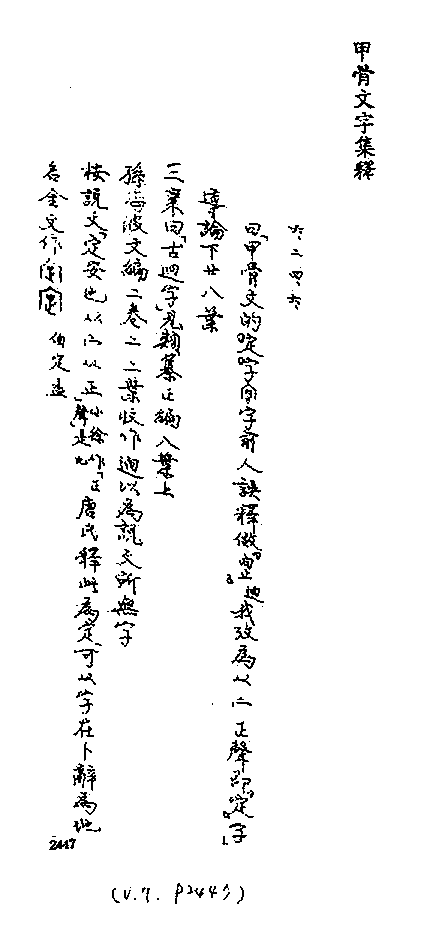 甲骨文字集釋
六・二・四・六
曰「甲骨文的定字前人誤釋做『迥』我改為从宀正聲即『定』字」
導論下廿八葉
三案曰「古迥字」見類纂正編八葉上
孫海波文編二卷之二二葉收作迥以為說文所無字
按說文「定安也从宀从正」小徐作「正聲」是也唐氏釋此為定可从字在卜辭為地
名金文作 伯定盉
2447
(V.7. P2445)